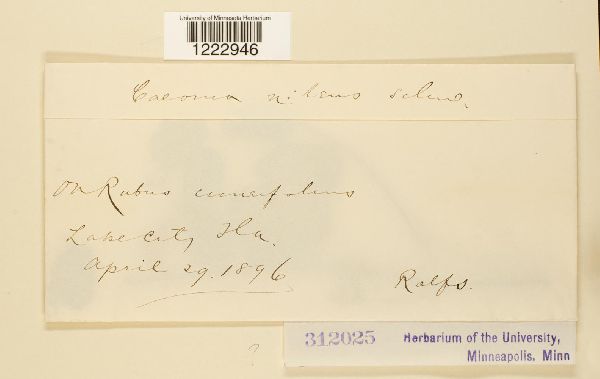 University of Minnesota Herbarium
1222946
Caeoma nitens Schw.
On Rubus cuneifolius
Lake City, Fla.
April 29, 1896
Rolfs.
312025
Herbarium of the University,
Minneapolis, Minn
?